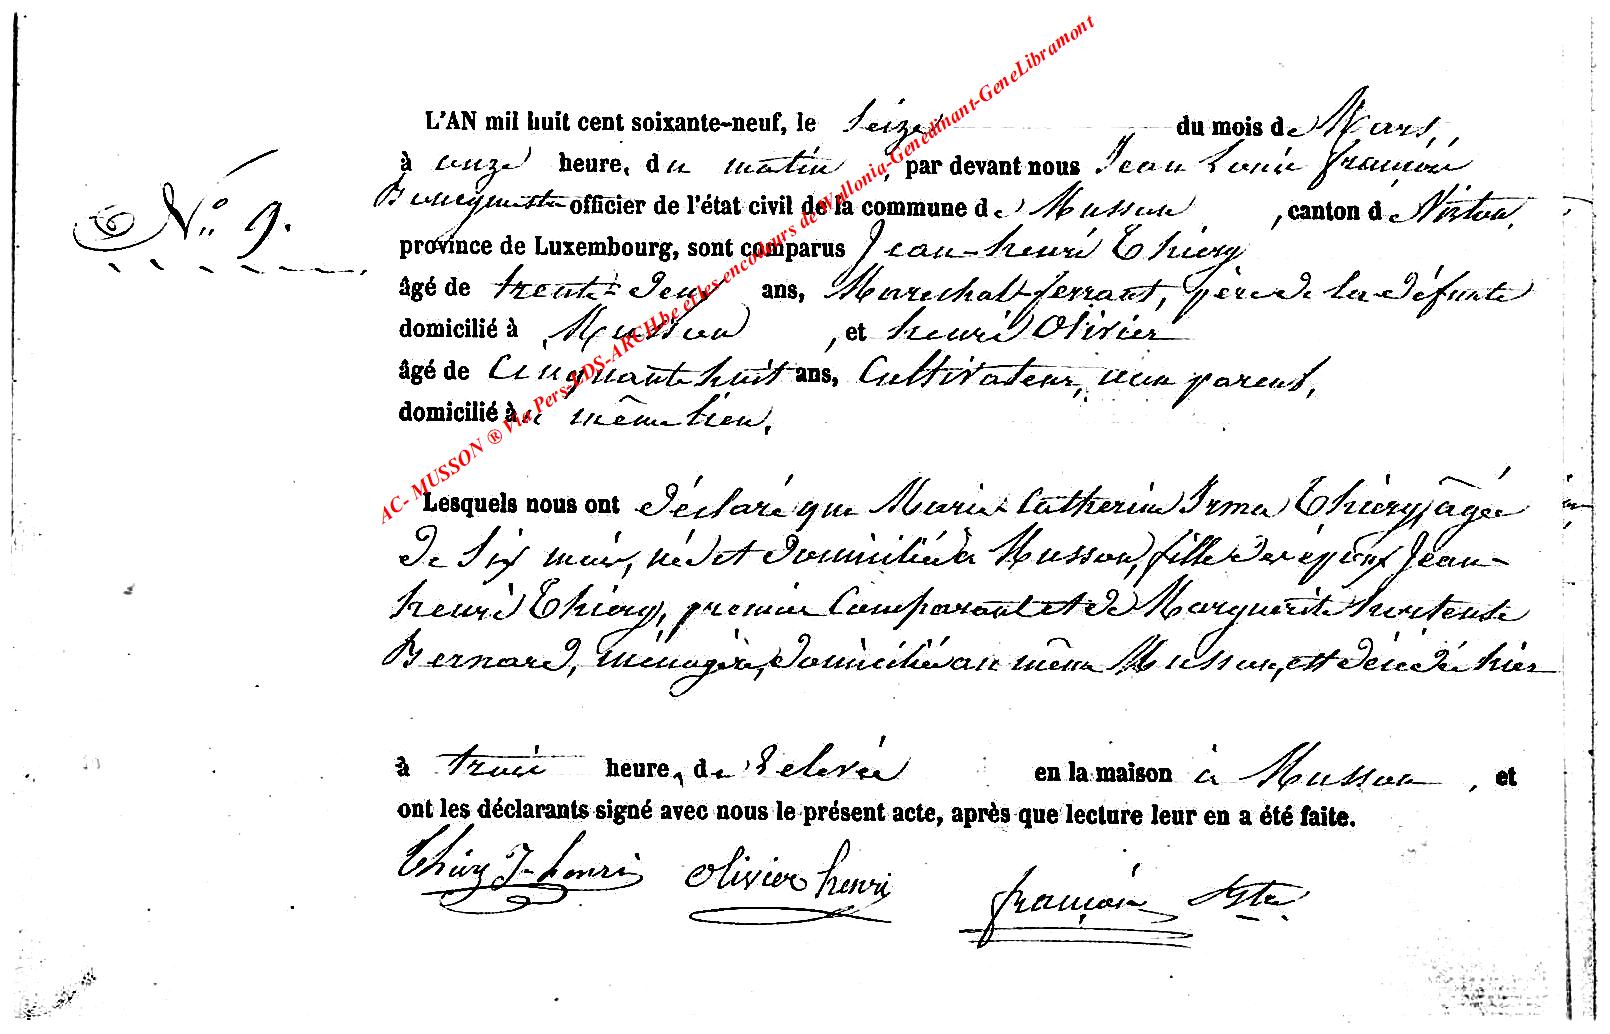 L'AN mil huit cent soixante-neuf, le seize du mois de Mars,
à onze heure, du matin, par devant nous Jean Louis françois
officier de l'état civil de la commune de Musson, canton de Virton,
N° 9.
province de Luxembourg, sont comparus Jean-henri Thiery
âgé de trente-deux ans, Maréchal-ferrant, père de la défunte
domicilié à Musson, et henri Olivier
âgé de Cinquante huit ans, Cultivateur, non parent,
domicilié à même lieu.
AC- MUSSON ® Via Pers-LDS-ARCH.be et les encodeurs de Wallonia-Genedinant-GeneLibramont
Lesquels nous ont déclaré que Marie Catherine Irma Thiery, âgée
de six mois, née et domiciliée à Musson, fille des époux Jean-
henri Thiery, premier Comparant et de Marguerite hortense
Bernard, ménagère, domiciliée au même Musson, est décédée hier
à trois heure, de relevée en la maison à Musson, et
ont les déclarants signé avec nous le présent acte, après que lecture leur en a été faite.
Thiery J-henri Olivier henri françois